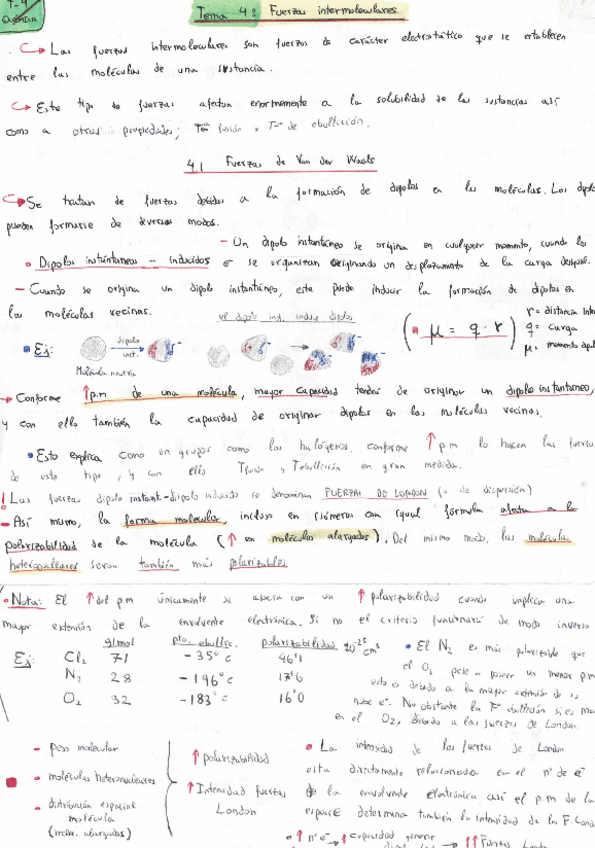 T-4
Química
Tema 4: Fuerzas intermoleculares
Las fuerzas intermoleculares son fuerzas de carácter electrostático que se establecen
entre las moléculas de una sustancia.
Este tipo de fuerzas afectan enormemente a la solubilidad de las sustancias así
como a otras propiedades; fusión y de ebullición.
4.1 Fuerzas de Van der Waals
Se tratan de fuerzas debidas a la formación de dipolos en las moléculas. Los
pueden formarse de diversos modos.
- Un dipolo instantáneo se origina en cualquier momento, cuando los
• Dipolos instantáneos - inducidos e⁻ se organizan originando un desplazamiento de la carga
- Cuando se origina un dipolo instantáneo, este puede inducir la formación de dipolos en
las moléculas vecinas.
el dipolo inst. induce dipolos
Ej:
dipolo
inst.
Molécula neutra
( μ = q · r )
r = distancia
q = carga
μ = momento
Conforme ↑ p.m de una molécula, mayor capacidad tendrá de originar un dipolo instantáneo,
y con ello también la capacidad de originar dipolos en las moléculas vecinas.
• Esto explica como en grupos como los halógenos, conforme ↑ p.m lo hacen las
de este tipo, y con ello Tfusión y Tebullición en gran medida.
! Las fuerzas dipolo instant-dipolo inducido se denominan FUERZAS DE LONDON (o de dispersión)
- Así mismo, la forma molecular, incluso en isómeros con igual fórmula afecta a la
polarizabilidad de la molécula (↑ en moléculas alargadas). Del mismo modo, las moléculas
heteronucleares serán también más polarizables
• Nota: El ↑ del p.m únicamente se asocia con un ↑ polarizabilidad cuando implica una
mayor extensión de la envolvente electrónica. Si no el criterio funcionará de modo inverso
g/mol pto. ebullic. polarizabilidad 10⁻²⁵ cm³
Ej: Cl₂ 71 -35° c 46'1
N₂ 28 -196° c 17'6
O₂ 32 -183° c 16'0
• El N₂ es más polarizable que
el O₂ pese a poseer un menor p.m
esto es debido a la mayor extensión de su
nube e⁻. No obstante la ebullición sí es
en el O₂, debido a las fuerzas de London.
- peso molecular
- moléculas heteronucleares
- distribución espacial
molécula
(moléc. alargadas)
↑ polarizabilidad
↑ Intensidad fuerzas
London
• La intensidad de las fuerzas de London
esta directamente relacionada con el nº de e⁻
de la envolvente electrónica así el p.m de la
especie determina también la intensidad de las F. London
• ↑ nº e⁻ → ↑ capacidad generar → ↑↑ Fuerzas